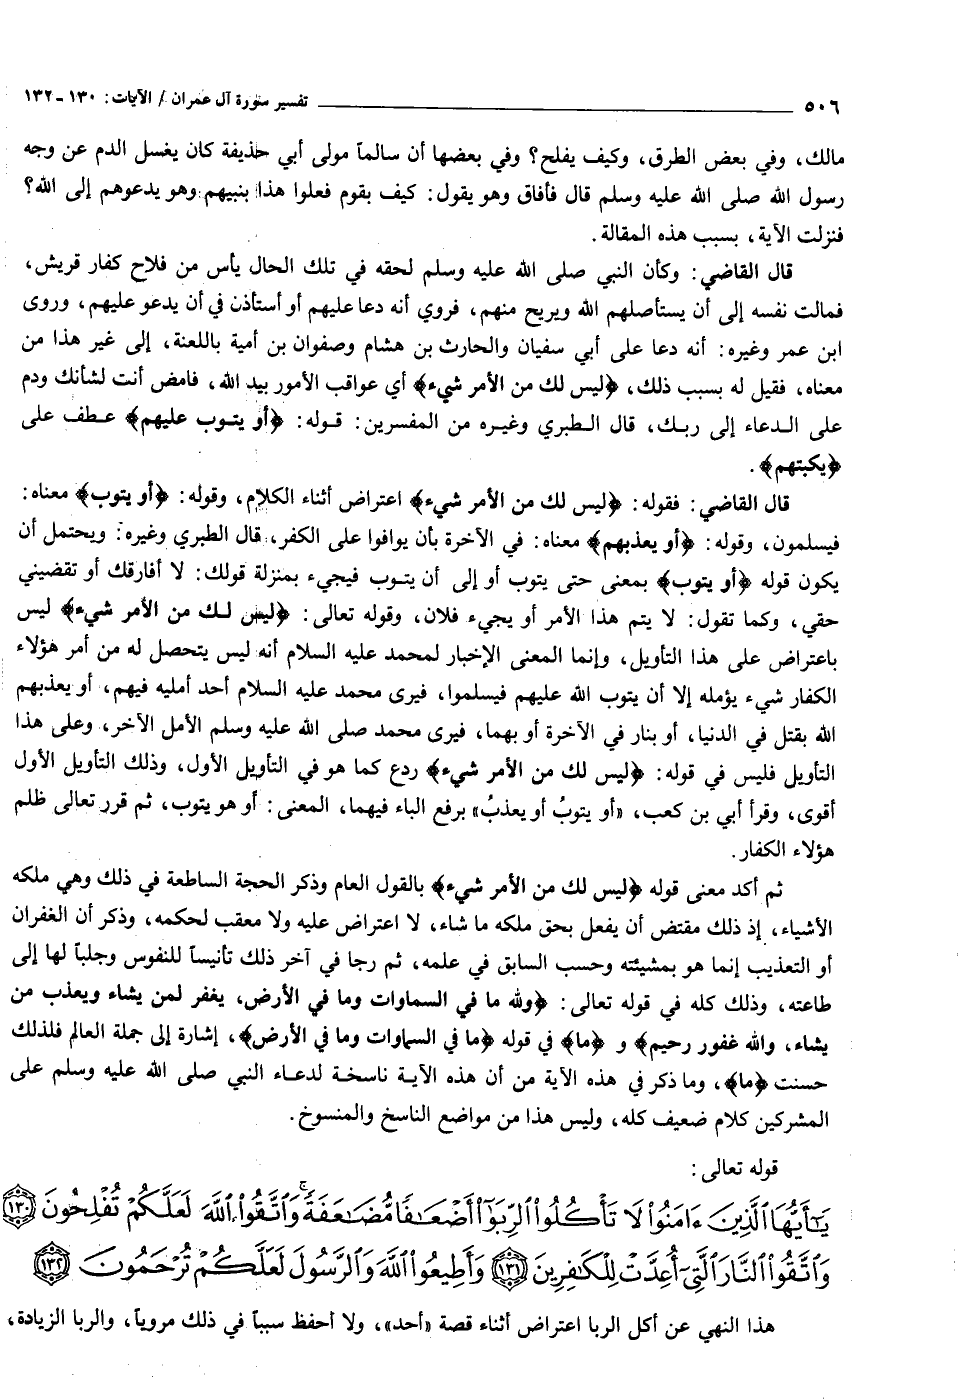 ٥٠٦ تفسير سورة آل عمران / الآيات: ١٣٠ - ١٣٢
مالك، وفي بعض الطرق، وكيف يفلح؟ وفي بعضها أن سالماً مولى أبي حذيفة كان يغسل الدم عن وجه
رسول الله صلى الله عليه وسلم قال فأفاق وهو يقول: كيف بقوم فعلوا هذا بنبيهم وهو يدعوهم إلى الله؟
فنزلت الآية، بسبب هذه المقالة.
قال القاضي: وكأن النبي صلى الله عليه وسلم لحقه في تلك الحال يأس من فلاح كفار قريش،
فمالت نفسه إلى أن يستأصلهم الله ويريح منهم، فروي أنه دعا عليهم أو أستأذن في أن يدعو عليهم، وروى
ابن عمر وغيره: أنه دعا على أبي سفيان والحارث بن هشام وصفوان بن أمية باللعنة، إلى غير هذا من
معناه، فقيل له بسبب ذلك، ﴿ليس لك من الأمر شيء﴾ أي عواقب الأمور بيد الله، فامض أنت لشأنك ودم
على الدعاء إلى ربك، قال الطبري وغيره من المفسرين: قوله: ﴿أو يتوب عليهم﴾ عطف على
﴿يكبتهم﴾.
قال القاضي: فقوله: ﴿ليس لك من الأمر شيء﴾ اعتراض أثناء الكلام، وقوله: ﴿أو يتوب﴾ معناه:
فيسلمون، وقوله: ﴿أو يعذبهم﴾ معناه: في الآخرة بأن يوافوا على الكفر، قال الطبري وغيره: ويحتمل أن
يكون قوله ﴿أو يتوب﴾ بمعنى حتى يتوب أو إلى أن يتوب فيجيء بمنزلة قولك: لا أفارقك أو تقضيني
حقي، وكما تقول: لا يتم هذا الأمر أو يجيء فلان، وقوله تعالى: ﴿ليس لك من الأمر شيء﴾ ليس
باعتراض على هذا التأويل، وإنما المعنى الإخبار لمحمد عليه السلام أنه ليس يتحصل له من أمر هؤلاء
الكفار شيء يؤمله إلا أن يتوب الله عليهم فيسلموا، فيرى محمد عليه السلام أحد أمليه فيهم، أو يعذبهم
الله بقتل في الدنيا، أو بنار في الآخرة أو بهما، فيرى محمد صلى الله عليه وسلم الأمل الآخر، وعلى هذا
التأويل فليس في قوله: ﴿ليس لك من الأمر شيء﴾ ردع كما هو في التأويل الأول، وذلك التأويل الأول
أقوى، وقرأ أبي بن كعب، «أو يتوبُ أو يعذبُ» برفع الباء فيهما، المعنى: أو هو يتوب، ثم قرر تعالى ظلم
هؤلاء الكفار.
ثم أكد معنى قوله ﴿ليس لك من الأمر شيء﴾ بالقول العام وذكر الحجة الساطعة في ذلك وهي ملكه
الأشياء، إذ ذلك مقتض أن يفعل بحق ملكه ما شاء، لا اعتراض عليه ولا معقب لحكمه، وذكر أن الغفران
أو التعذيب إنما هو بمشيئته وحسب السابق في علمه، ثم رجا في آخر ذلك تأنيساً للنفوس وجلباً لها إلى
طاعته، وذلك كله في قوله تعالى: ﴿ولله ما في السماوات وما في الأرض، يغفر لمن يشاء ويعذب من
يشاء، والله غفور رحيم﴾ و ﴿ما﴾ في قوله ﴿ما في السماوات وما في الأرض﴾، إشارة إلى جملة العالم فلذلك
حسنت ﴿ما﴾، وما ذكر في هذه الآية من أن هذه الآية ناسخة لدعاء النبي صلى الله عليه وسلم على
المشركين كلام ضعيف كله، وليس هذا من مواضع الناسخ والمنسوخ.
قوله تعالى:
يَٰٓأَيُّهَا ٱلَّذِينَ ءَامَنُوا۟ لَا تَأْكُلُوا۟ ٱلرِّبَوٰٓا۟ أَضْعَٰفًا مُّضَٰعَفَةً ۖ وَٱتَّقُوا۟ ٱللَّهَ لَعَلَّكُمْ تُفْلِحُونَ ١٣٠
وَٱتَّقُوا۟ ٱلنَّارَ ٱلَّتِىٓ أُعِدَّتْ لِلْكَٰفِرِينَ ١٣١ وَأَطِيعُوا۟ ٱللَّهَ وَٱلرَّسُولَ لَعَلَّكُمْ تُرْحَمُونَ ١٣٢
هذا النهي عن أكل الربا اعتراض أثناء قصة «أحد»، ولا أحفظ سبباً في ذلك مروياً، والربا الزيادة،